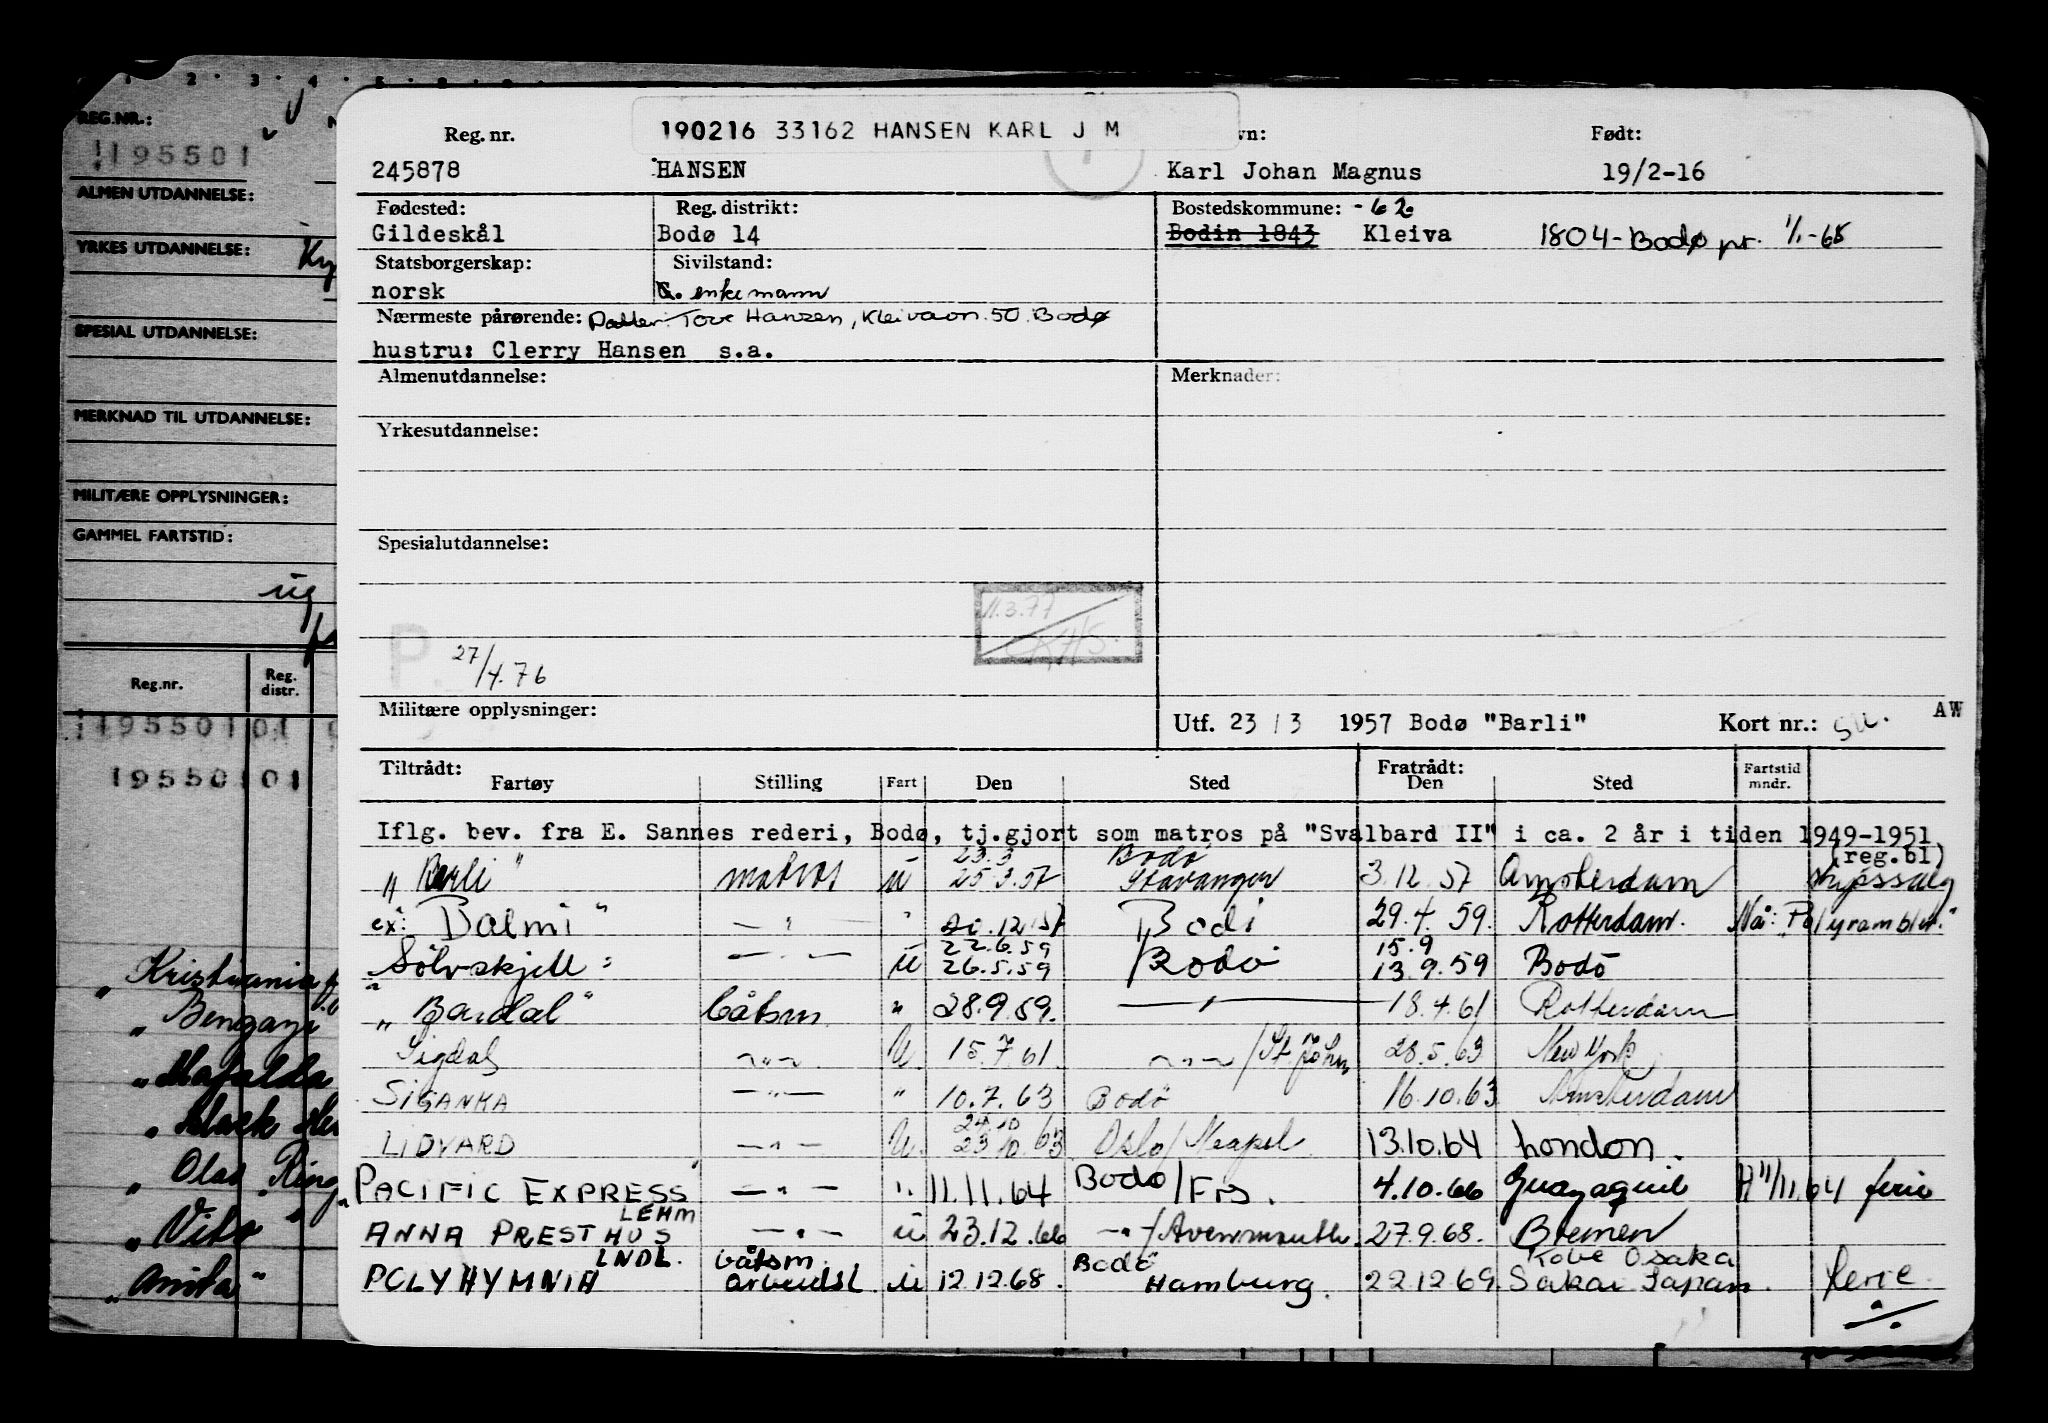 REG.NR.:
195501
ALMEN UTDANNELSE:
YRKES UTDANNELSE:
SPESIAL UTDANNELSE:
MERKNAD TIL UTDANNELSE:
MILITÆRE OPPLYSNINGER:
GAMMEL FARTSTID:
ug
Reg.nr. Reg. distr.
195501 01
195501 01
„Kristiania
„Mafalda
„Black
„Olav Ring
„Vito
„Anita"
190216 33162 HANSEN KARL J M
Reg. nr. vn: Født:
245878 HANSEN Karl Johan Magnus 19/2-16
Fødested: Reg. distrikt: Bostedskommune: -62
Gildeskål Bodø 14 Bodin 1843 Kleiva 1804-Bodø pr. 1/1-68
Statsborgerskap: Sivilstand:
norsk G. enkemann
Nærmeste pårørende: Datter: Tove Hansen, Kleivavn. 50. Bodø
hustru: Clerry Hansen s.a.
Almenutdannelse: Merknader:
Yrkesutdannelse:
Spesialutdannelse:
11.3.77
P. 27/4.76
Militære opplysninger: Utf. 23/3 1957 Bodø "Barli" Kort nr.: AW
Tiltrådt: Fratrådt:
Fartøy Stilling Fart Den Sted Den Sted Fartstid mndr.
Iflg. bev. fra E. Sannes rederi, Bodø, tj.gjort som matros på "Svalbard II" i ca. 2 år i tiden 1949-1951
(reg.bl)
23.3 Bodø
„Barli" matros u 25.3.57 Stavanger 3.12.57 Amsterdam
ex: Dalmi" — " — " 12.57 Bodö 29.4.59. Rotterdam. Nå:
22.6.59 15.9
„Sölvskjell" — " — u 26.5.59 Bodö 13.9.59 Bodö
„Bardal" båtsm " 28.9.59. — " — 18.4.61 Rotterdam
Sigdal — " — U 15.7.61. — " — /St John 28.5.63 New York
SIGANKA — " — " 10.7.63 Bodö 16.10.63 Amsterdam
24.10
LIDVARD — " — U 23.10.63 Oslo/Neapel 13.10.64 London.
„PACIFIC EXPRESS" — " — " 11.11.64 Bodø/Frs. 4.10.66 Guayaquil H 11/11.64 ferie
LEHM
ANNA PRESTHUS — " — u 23.12.66 — " — /Avonmouth. 27.9.68. Bremen
LNDL. båtsm. Bodö Kobe Osaka
POLYHYMNIA arbeidsl. u 12.12.68. Hamburg. 22.12.69. Sakai Japan. ferie